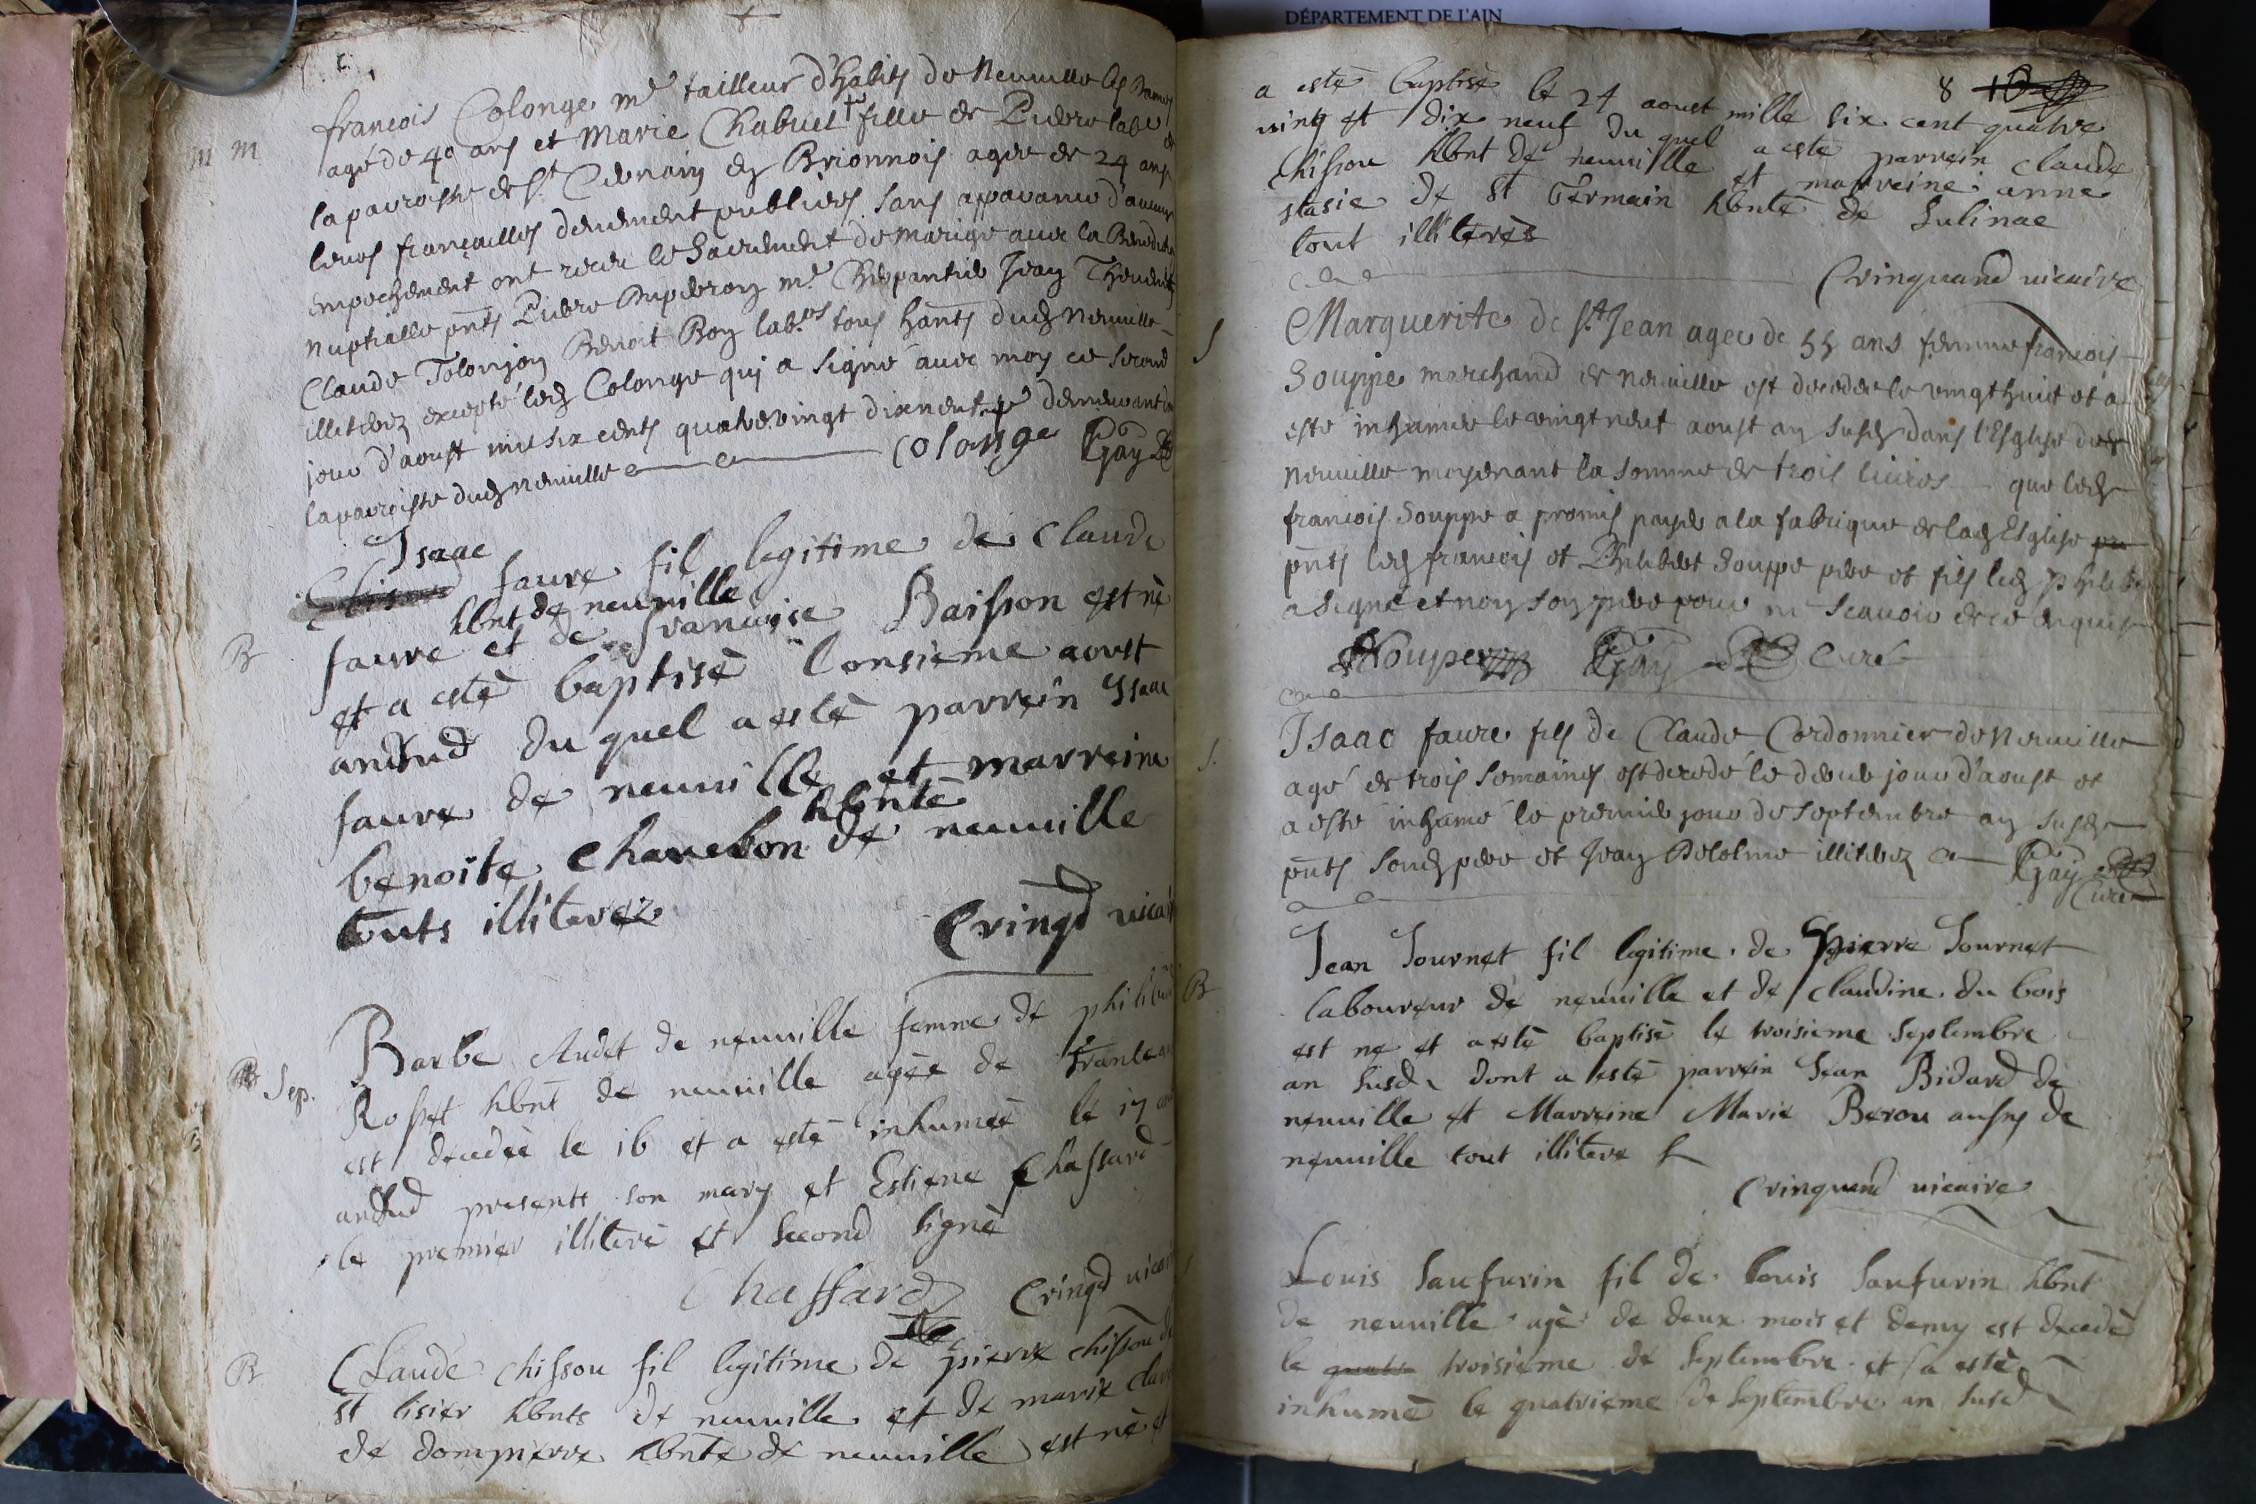 françois Colonge m.e tailleur d'habits de Neuville les Dames
agé de 40 ans et Marie Chabuel fille de Pierre lab.r de
la parroisse de St en Brionnois agée de 24 ans
leurs françailles deuement publiées sans apparance d'aucun
empechement ont receu le Sacrement de mariage avec la Benediction
nuptialle pnts Pierre Duperon m.e Charpantier Jean Thevenet
Claude Tolonjon Benoit Roy lab.rs tous hants dud Neuville
illiterez excepté led Colonge qui a signé avec moy ce second
jour d'aoust mil six cents quatrevingt dixneuf
la parroisse dud Neuville colonge Gay
M
Isaac
faure fil legitime de Claude
hbnt de neuville
faure et de francoise Baisson est nè
et a estè baptisè l'onsieme aoust
B
an susd du quel a estè parrein Isaac
faure de neuville et marreine
hbnte
benoite Charebon de neuville
touts illiterez
Cringd vicai
Barbe Audet de neuville femme de philib
Rosset hbnt de neuville agèe de trante
Sep.
est decedèe le 16 et a estè inhumeè le 17
an susd presents son mary et Estiene Chassard
le premier illiterè et second signè
Chassard Cringd vicai
B
Claude Chissou fil legitime de pierre chissou de
st lisier hbnts de neuville et de marie clar
de dompierre hbnte de neuville est nè et
DÉPARTEMENT DE L'AIN
8
a estè baptisè le 24 aoust mille six cent quatre
vingt et dix neuf du quel a estè parrein Claude
Chissou hbnt de neuville et marreine anne
stasie de St Germain hbnte de Sulinac
tout illiterès
Cringuand vicaire
S
Marguerite de St Jean agee de 55 ans femme francois
Souppe marchand de Neuville est decedee le vingthuit et a
este inhumee le vingt neuf aoust an susd dans l'Esglise dud
Neuville moyenant la somme de trois livres que led
francois Souppe a promis payer a la fabrique de lad Esglise
pnts led francois et Philibert Souppe pere et fils led Philibert
a signé et non son pere pour ne scavoir de ce enquis
Souppe Gay Curé
S.
Isaac faure fils de Claude Cordonnier de Neuville
agé de trois semaines est decedé le dernier jour d'aoust et
a esté inhumé le premier jour de septembre an susd
pnts sond pere et Jean Delolme illiterez Gay
Curé
B
Jean Journet fil legitime de pierre Journet
laboureur de neuville et de claudine du bois
est ne et a estè baptisè le troisieme Septembre
an susd dont a estè parrein Jean Bidard de
neuville et Marreine Marie Berou aussy de
neuville tout illitere
Cringuand vicaire
Louis Saufurin fil de louis Saufurin hbnt
de neuville agè de deux mois et demy est decedè
le quatr troisieme de Septembre et a estè
inhumè le quatrieme de Septembre an susd